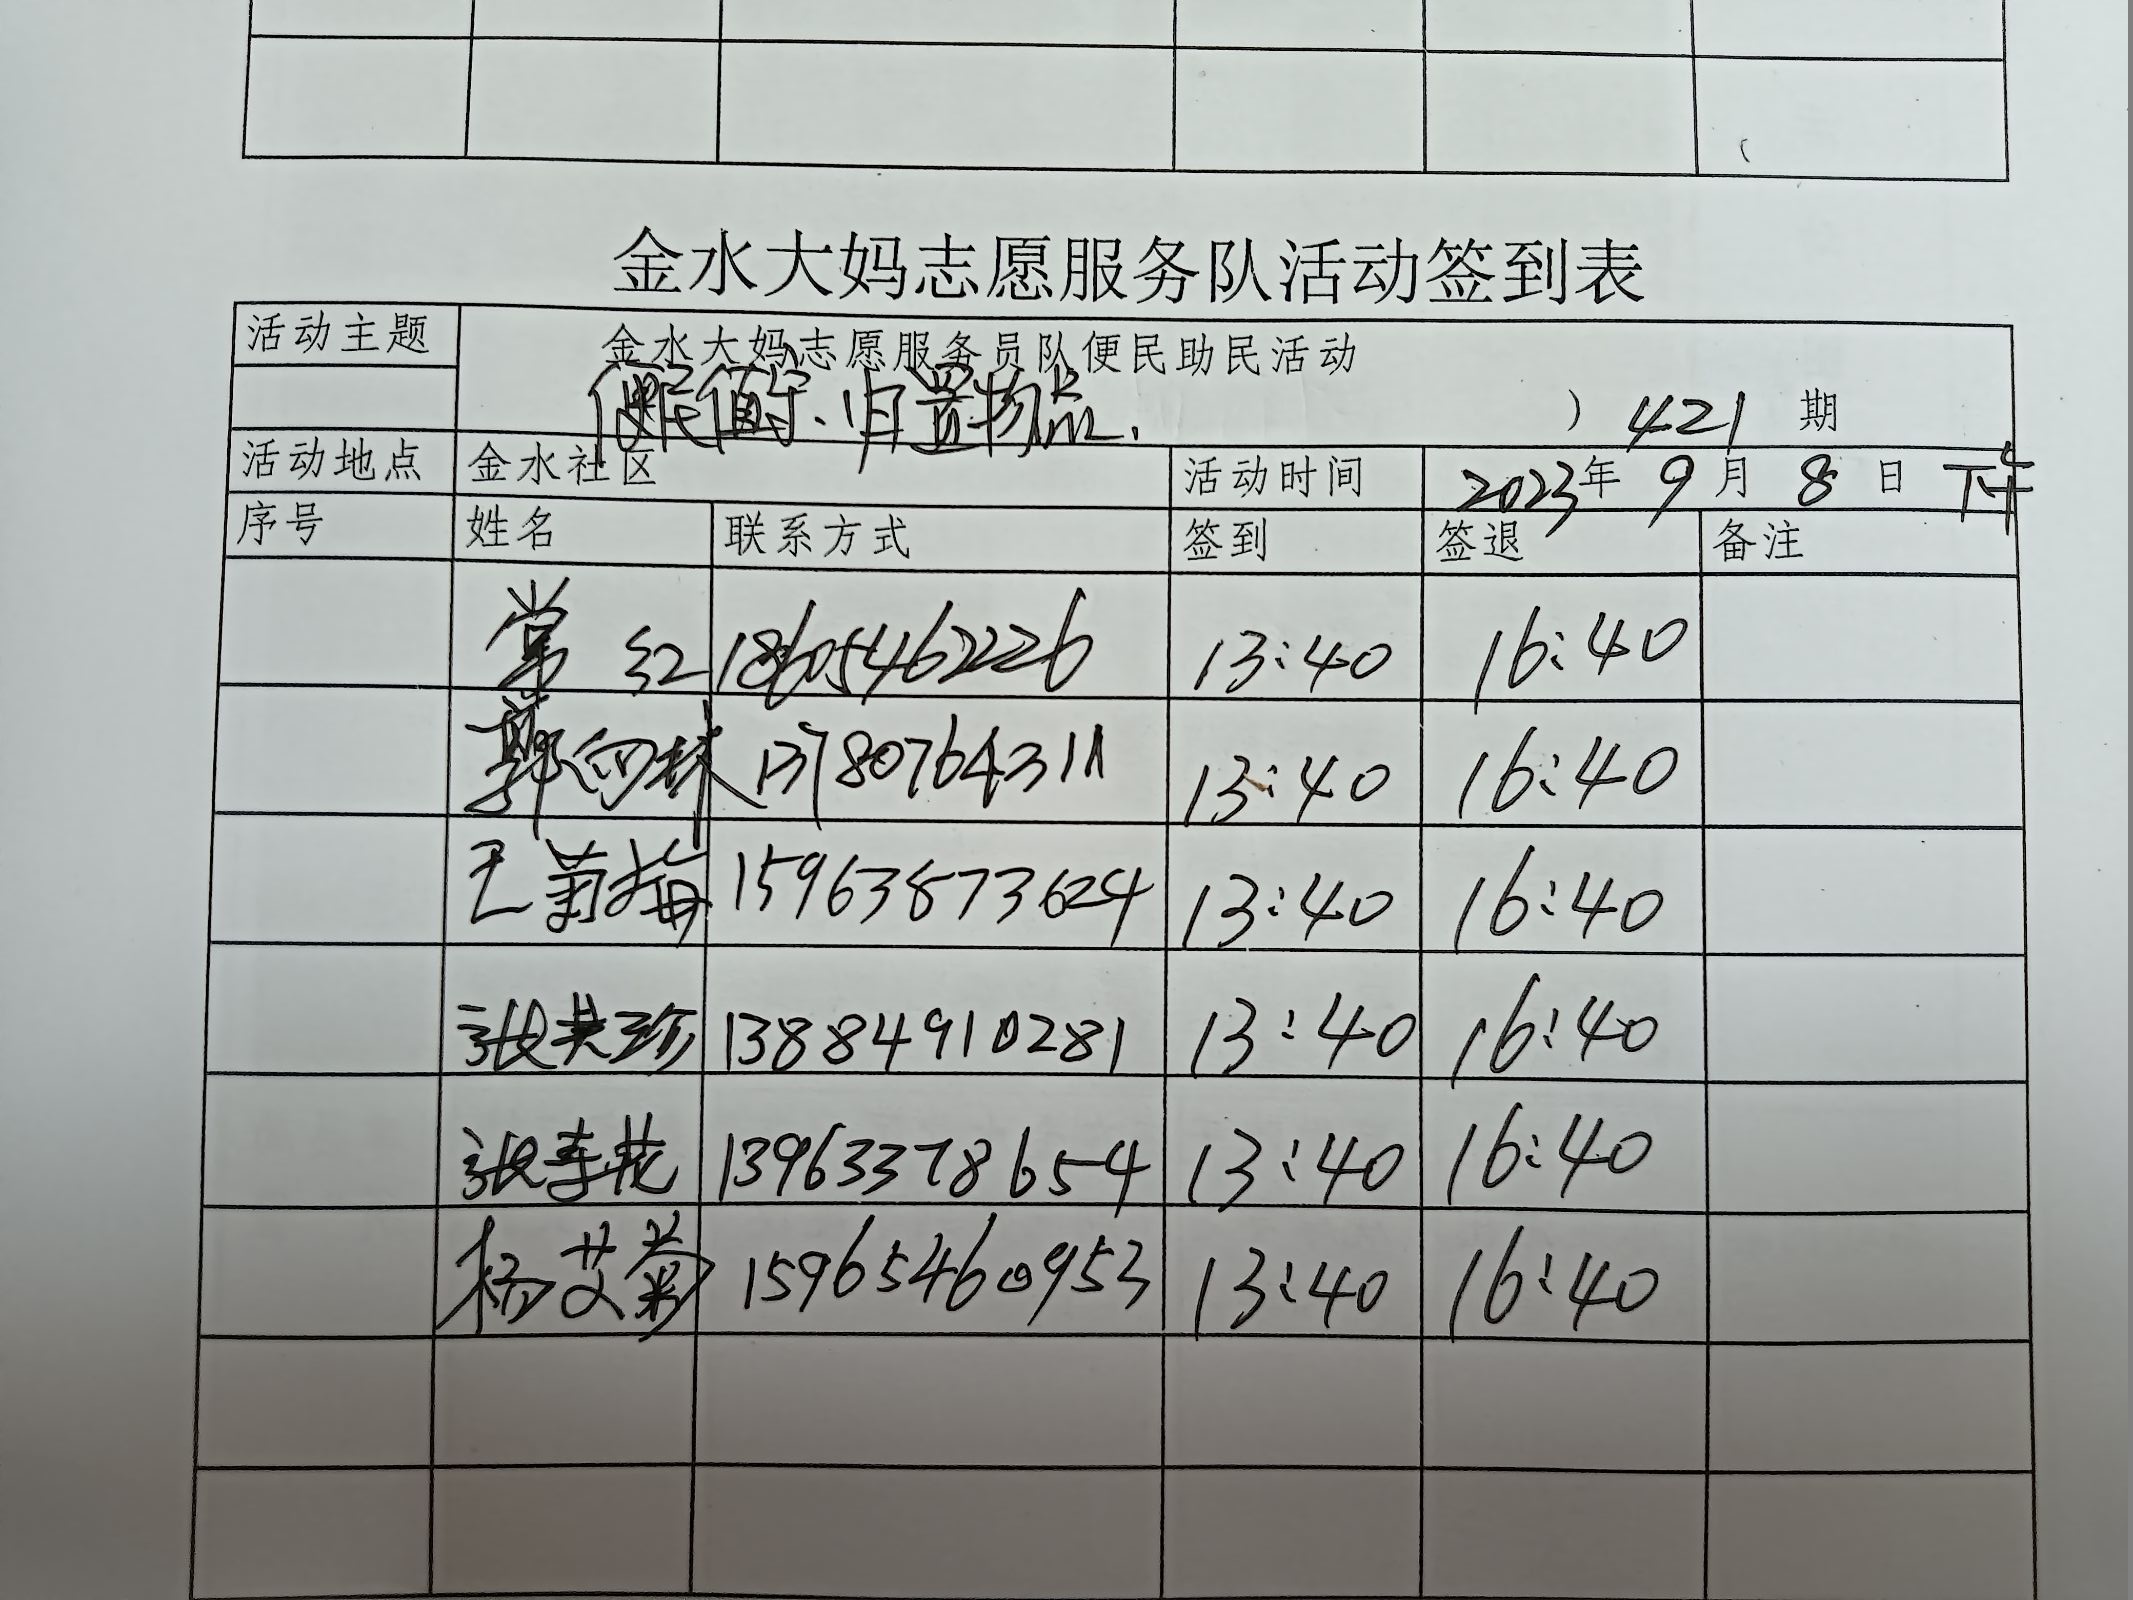 金水大妈志愿服务队活动签到表
活动主题 金水大妈志愿服务员队便民助民活动
便民值守、归置物品、 ) 421 期
活动地点 金水社区 活动时间 2023年 9月 8日 下午
序号 姓名 联系方式 签到 签退 备注
常红 18605462226 13:40 16:40
郭向林 13780764311 13:40 16:40
王菊梅 15963873624 13:40 16:40
张共珍 13884910281 13:40 16:40
张春花 13963378654 13:40 16:40
杨艾菊 15965460953 13:40 16:40